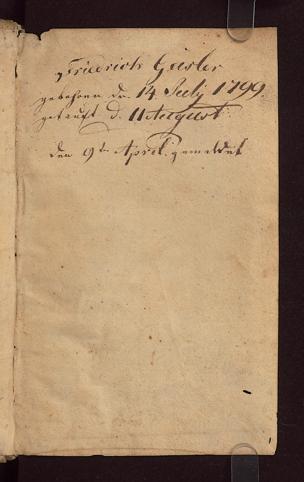 Friederich Gesler
gebohren d. 14 July 1799.
getauft d. 11 August
den 9t April gemeldet